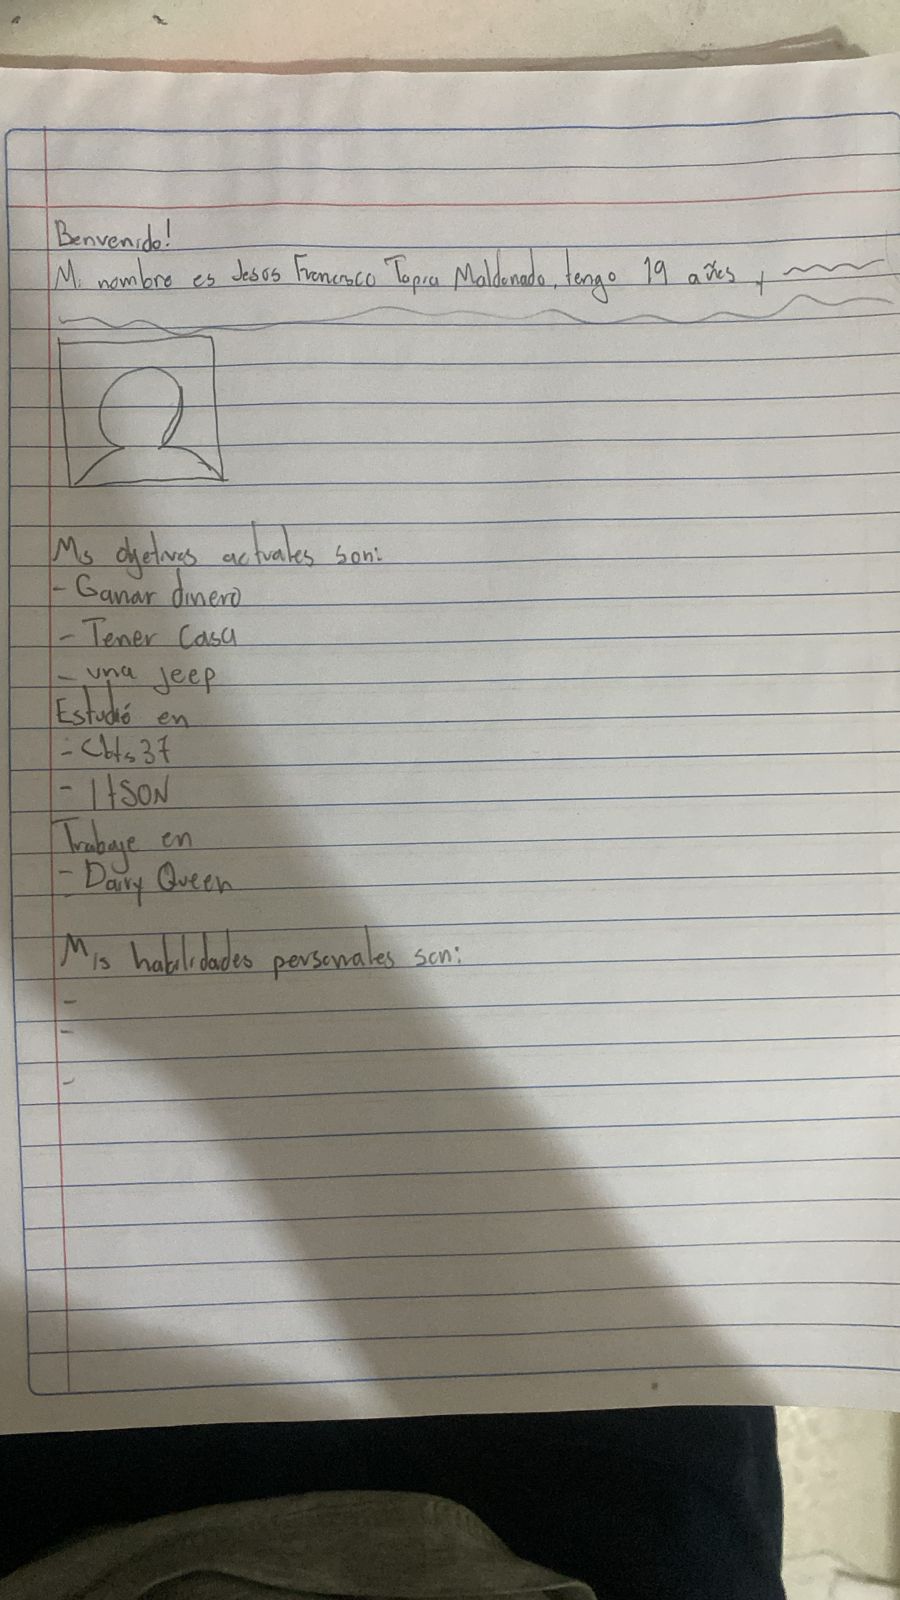 Benvenido!
Mi nombre es Jesús Francisco Tapia Maldonado, tengo 19 años, y
Mis objetivos actuales son:
- Ganar dinero
- Tener Casa
- una jeep
Estudié en
- Cbts37
- ItSON
Trabaje en
- Dairy Queen
Mis habilidades personales son:
-
-
-